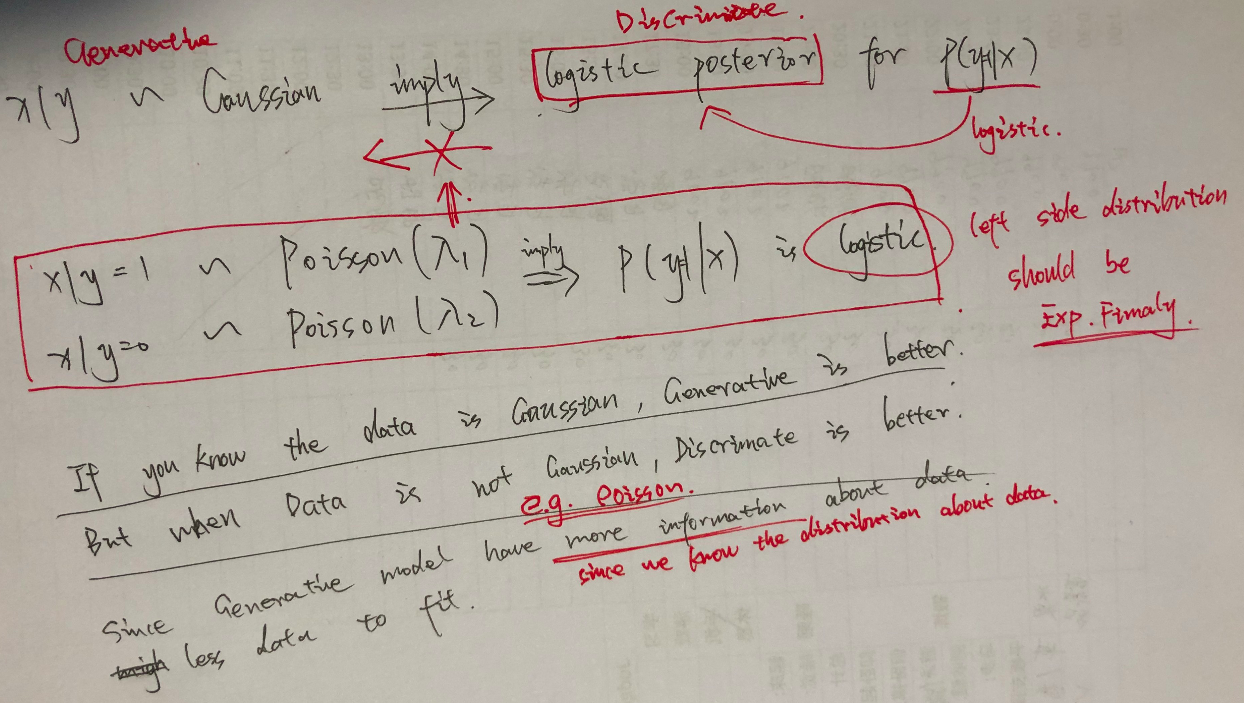 Generative
Discriminate.
x|y ~ Gaussian imply → logistic posterior for P(y=1|x)
logistic.
x|y=1 ~ Poisson(λ1) imply ⇒ P(y=1|x) is logistic.
x|y=0 ~ Poisson(λ2)
left side distribution
should be
Exp. Fimaly.
If you know the data is Gaussian, Generative is better.
But when Data is not Gaussian, Discrimate is better.
e.g. Poisson.
Since Generative model have more information about data.
since we know the distribution about data.
less data to fit.